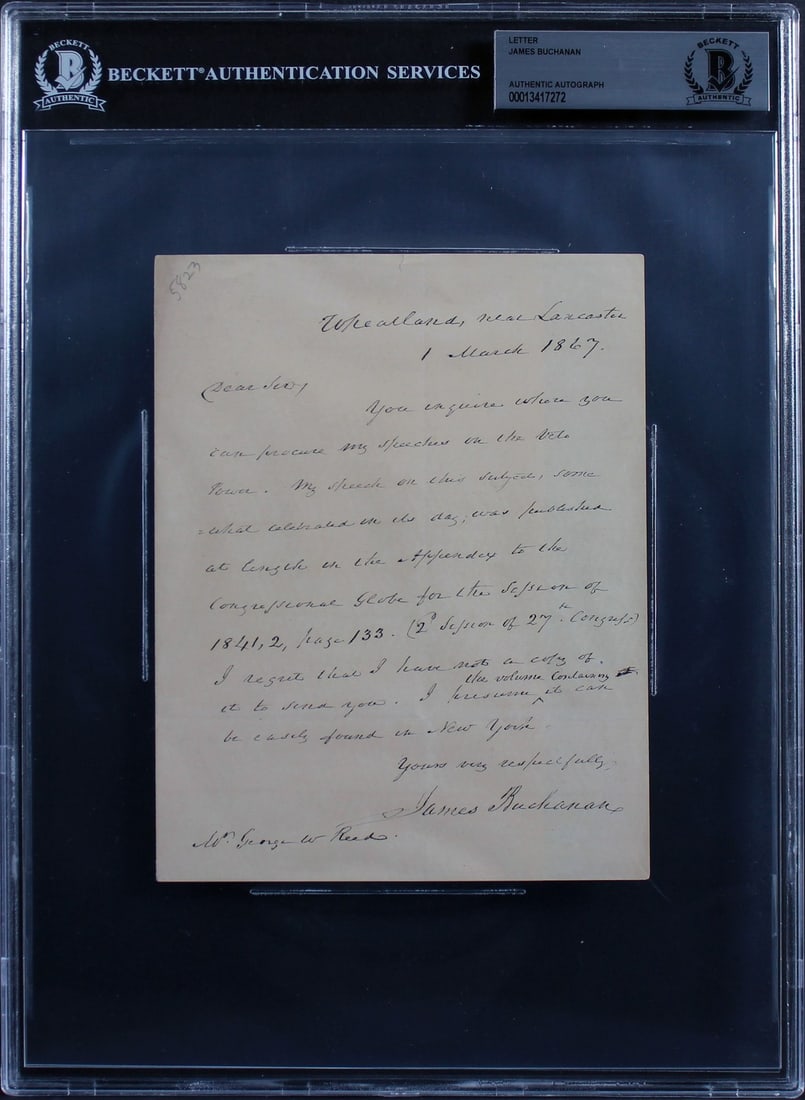 BECKETT
B
AUTHENTIC
BECKETT® AUTHENTICATION SERVICES
LETTER
JAMES BUCHANAN
AUTHENTIC AUTOGRAPH
00013417272
BECKETT
B
AUTHENTIC
5823
Wheatland, near Lancaster
1 March 1867.
Dear Sir,
You inquire where you
can procure my speeches on the Veto
Power. My speech on this subject, some
=what celebrated in its day, was published
at length in the Appendix to the
Congressional Globe for the Session of
1841,2, page 133. (2d Session of 27th Congress)
I regret that I have not a copy of
the volume containing it
it to send you. I presume ^ it can
be easily found in New York.
Yours very respectfully,
James Buchanan
Mr. George W Read.